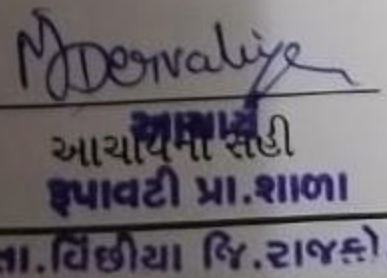 MDervaliya
આચાર્ય
આચાર્યની સહી
રૂપાવટી પ્રા.શાળા
તા.વિંછીયા જિ.રાજકો